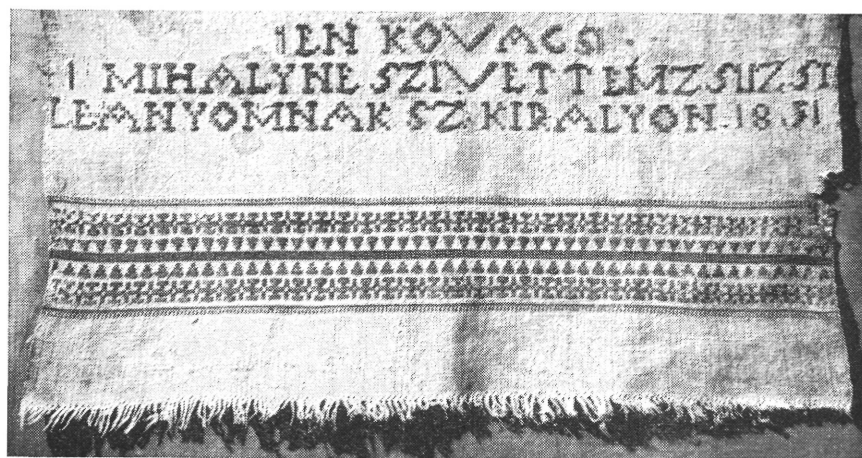 EN KOVACS
MIHALYNE SZIVETTEMZSUZSI
LEANYOMNAK SZ. KIRALYON 1851